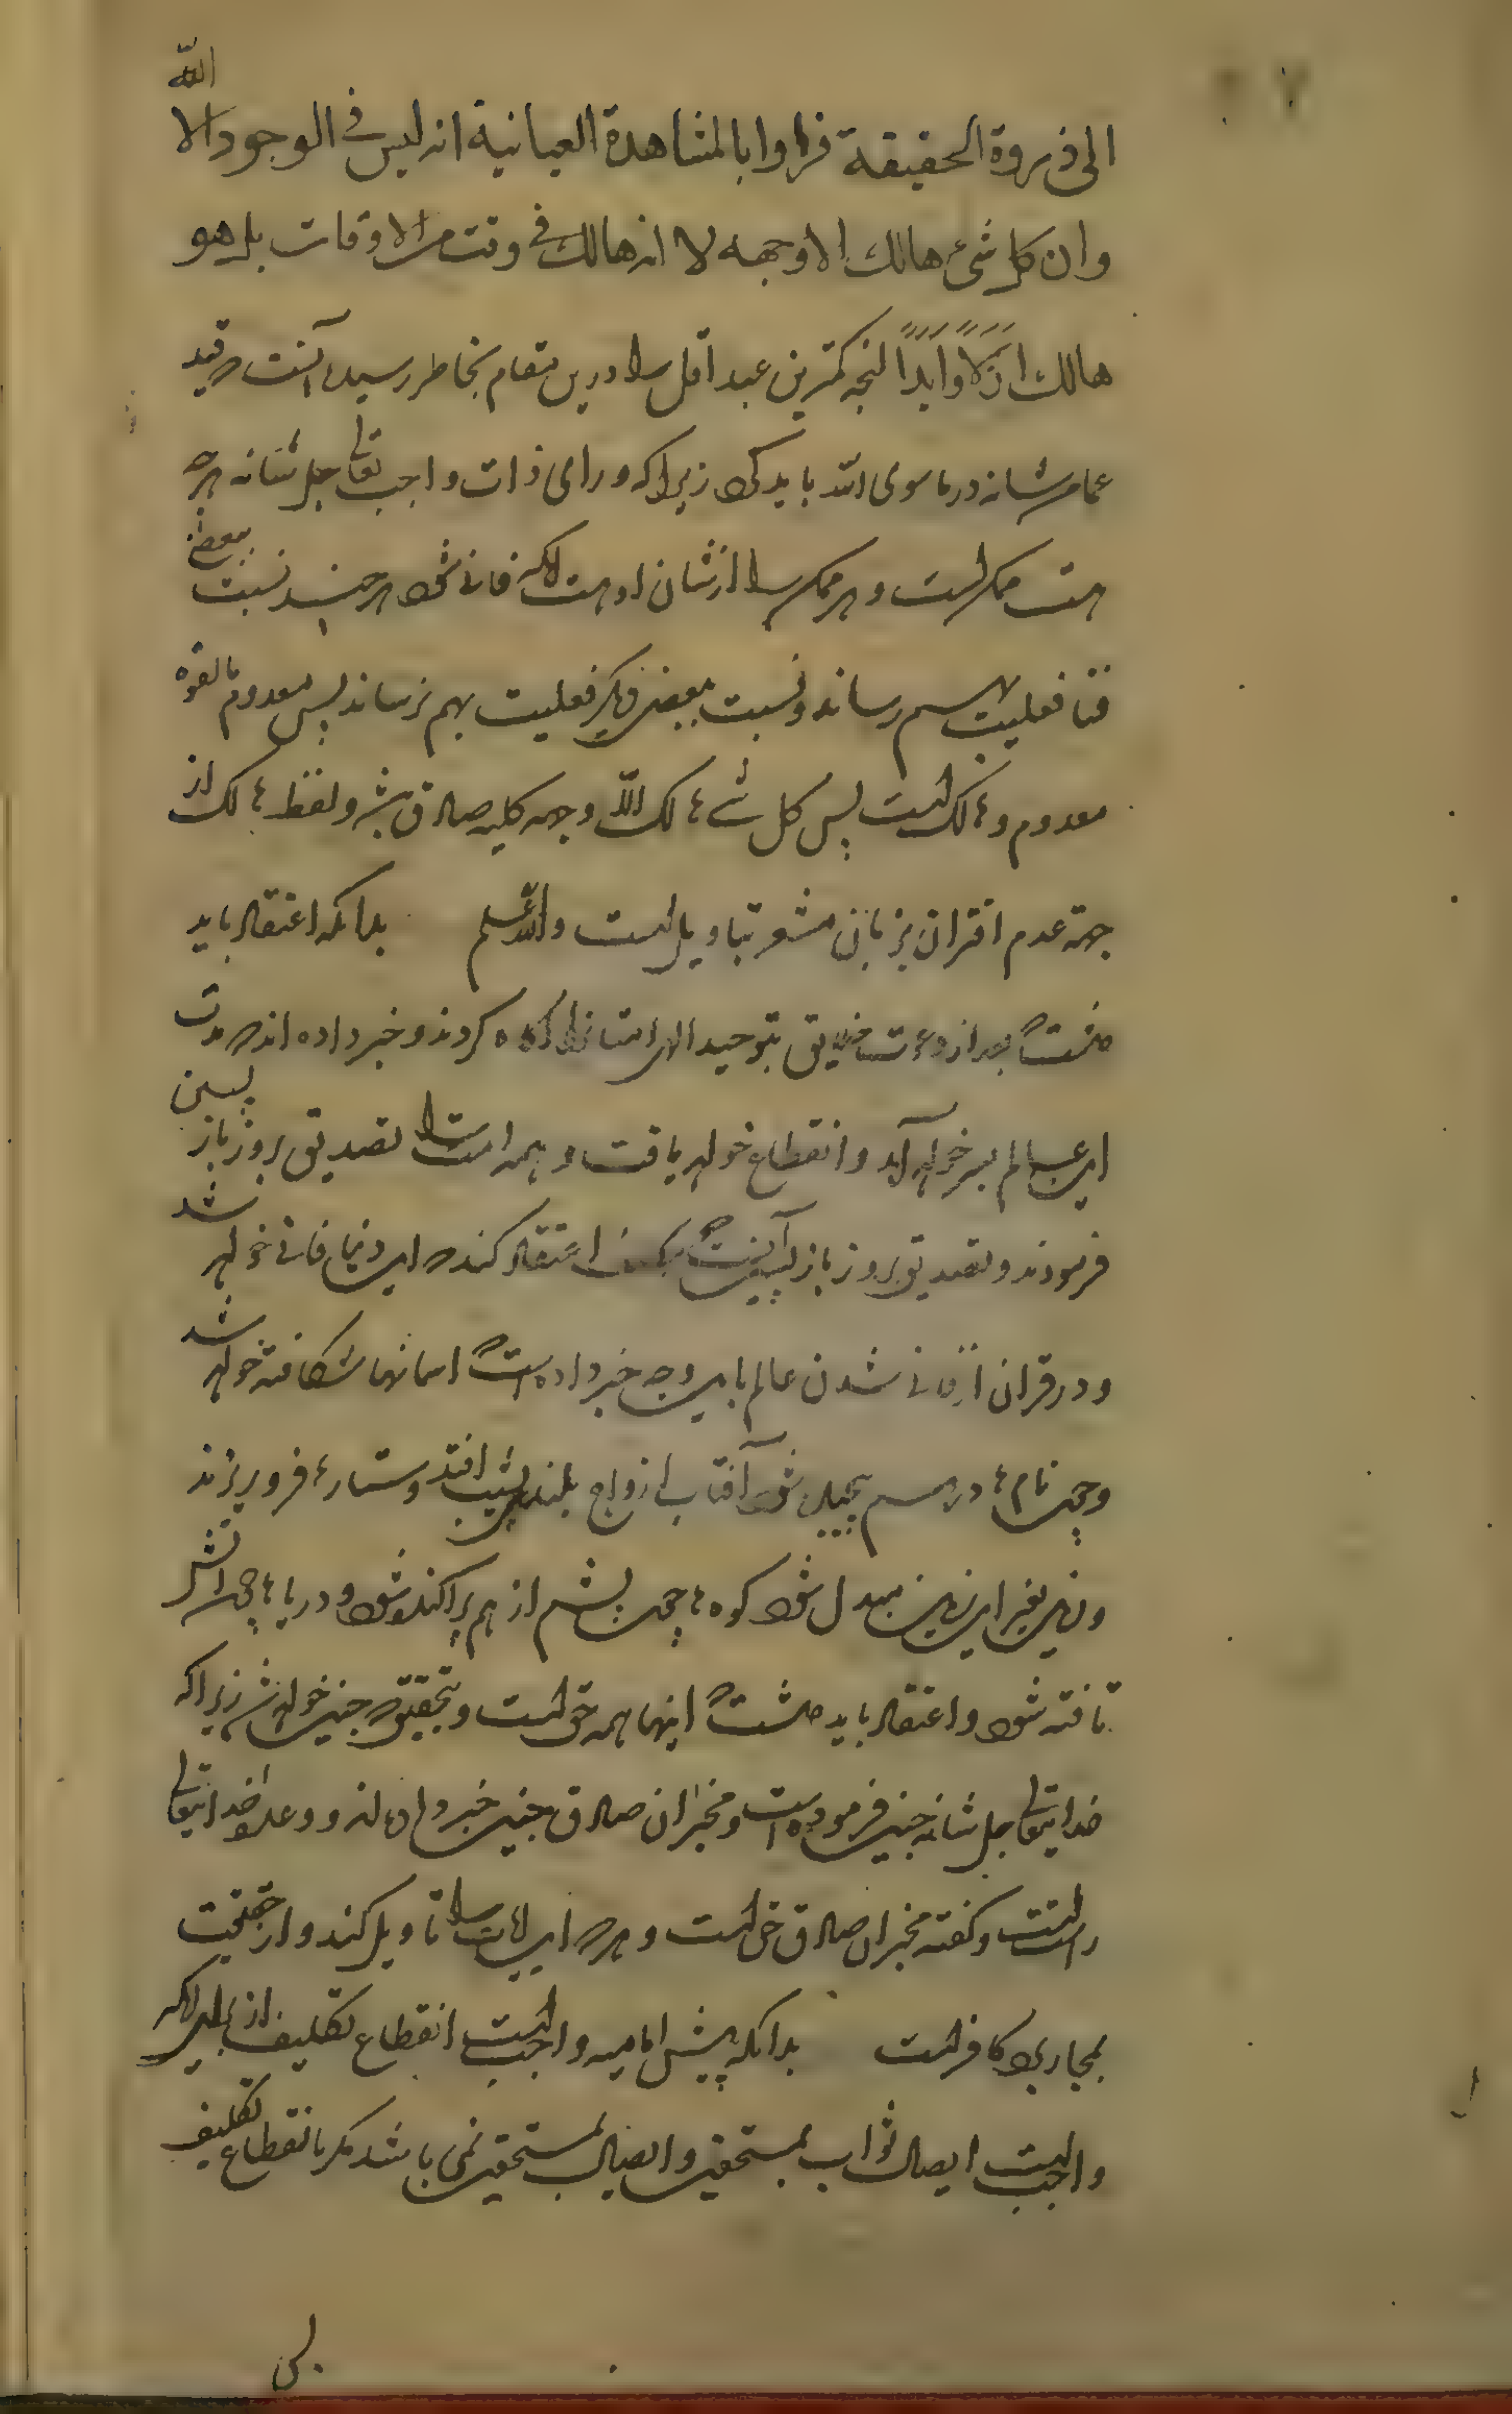 الى ذروة الحقيقة فراوا بالمشاهدة العيانية انه ليس فى الوجود الا الله
وان كل شئ هالك الا وجهه لا انه هالك فى وقت من الاوقات بل هو
هالك ازلا وابدا انچه كمترين عبد اقل را درين مقام بخاطر رسيده آنست كه قيد
امر شانه در ماسوى الله بايد كرد زيرا كه وراى ذات واجب تعالى جل شانه هر چه
هست ممكن است و هر ممكن را از شان او هست كه فانى شود هر چند نسبت ببعض
فنا فعليت بهم رساند و نسبت ببعض ديگر فعليت بهم نرساند پس معدوم بالقوه
معدوم و هالك است پس كل شئ هالك الا وجهه كليه صادق باشد و لفظ هالك از
جهة عدم اقتران بزمان مشعر بتاويل است والله اعلم بدانكه اعتقاد بايد
داشت كه بعد از دعوت خلايق بتوحيد الهى كردند و خبر داده اند كه مدت
اين عالم بسر خواهد آمد و انقطاع خواهد يافت و همه امت را تصديق بروز باز پسين
فرمودند و تصديق بروز باز پسين آنست كه اعتقاد كند كه اين دنيا فانى خواهد شد
و در قران از فانى شدن عالم باين وجه خبر داده است كه اسمانها شكافته خواهد شد
و چون نامها در هم پيچيده شود آفتاب از اوج بلند بنشيب افتد و ستارها فرو ريزند
و زمين بغير اين زمين مبدل شود كوهها چون پشم از هم پراكنده شود و درياها چون آتش
تافته شود و اعتقاد بايد داشت كه اينها همه حق است و بتحقيق كه چنين خواهد شد زيرا كه
خدايتعالى جل شانه چنين فرموده است و مخبران صادق چنين خبر داده اند و وعده خدايتعالى
راست است و گفته مخبران صادق حق است و هر كه اين آيات را تاويل كند و از حقيقت
بمجاز برد كافر است بدانكه پيش اماميه واجب است انقطاع تكليف از براى آنكه
واجب است ايصال ثواب بمستحقين و ايصال بمستحقين نمى باشد مگر بانقطاع تكليف
پس